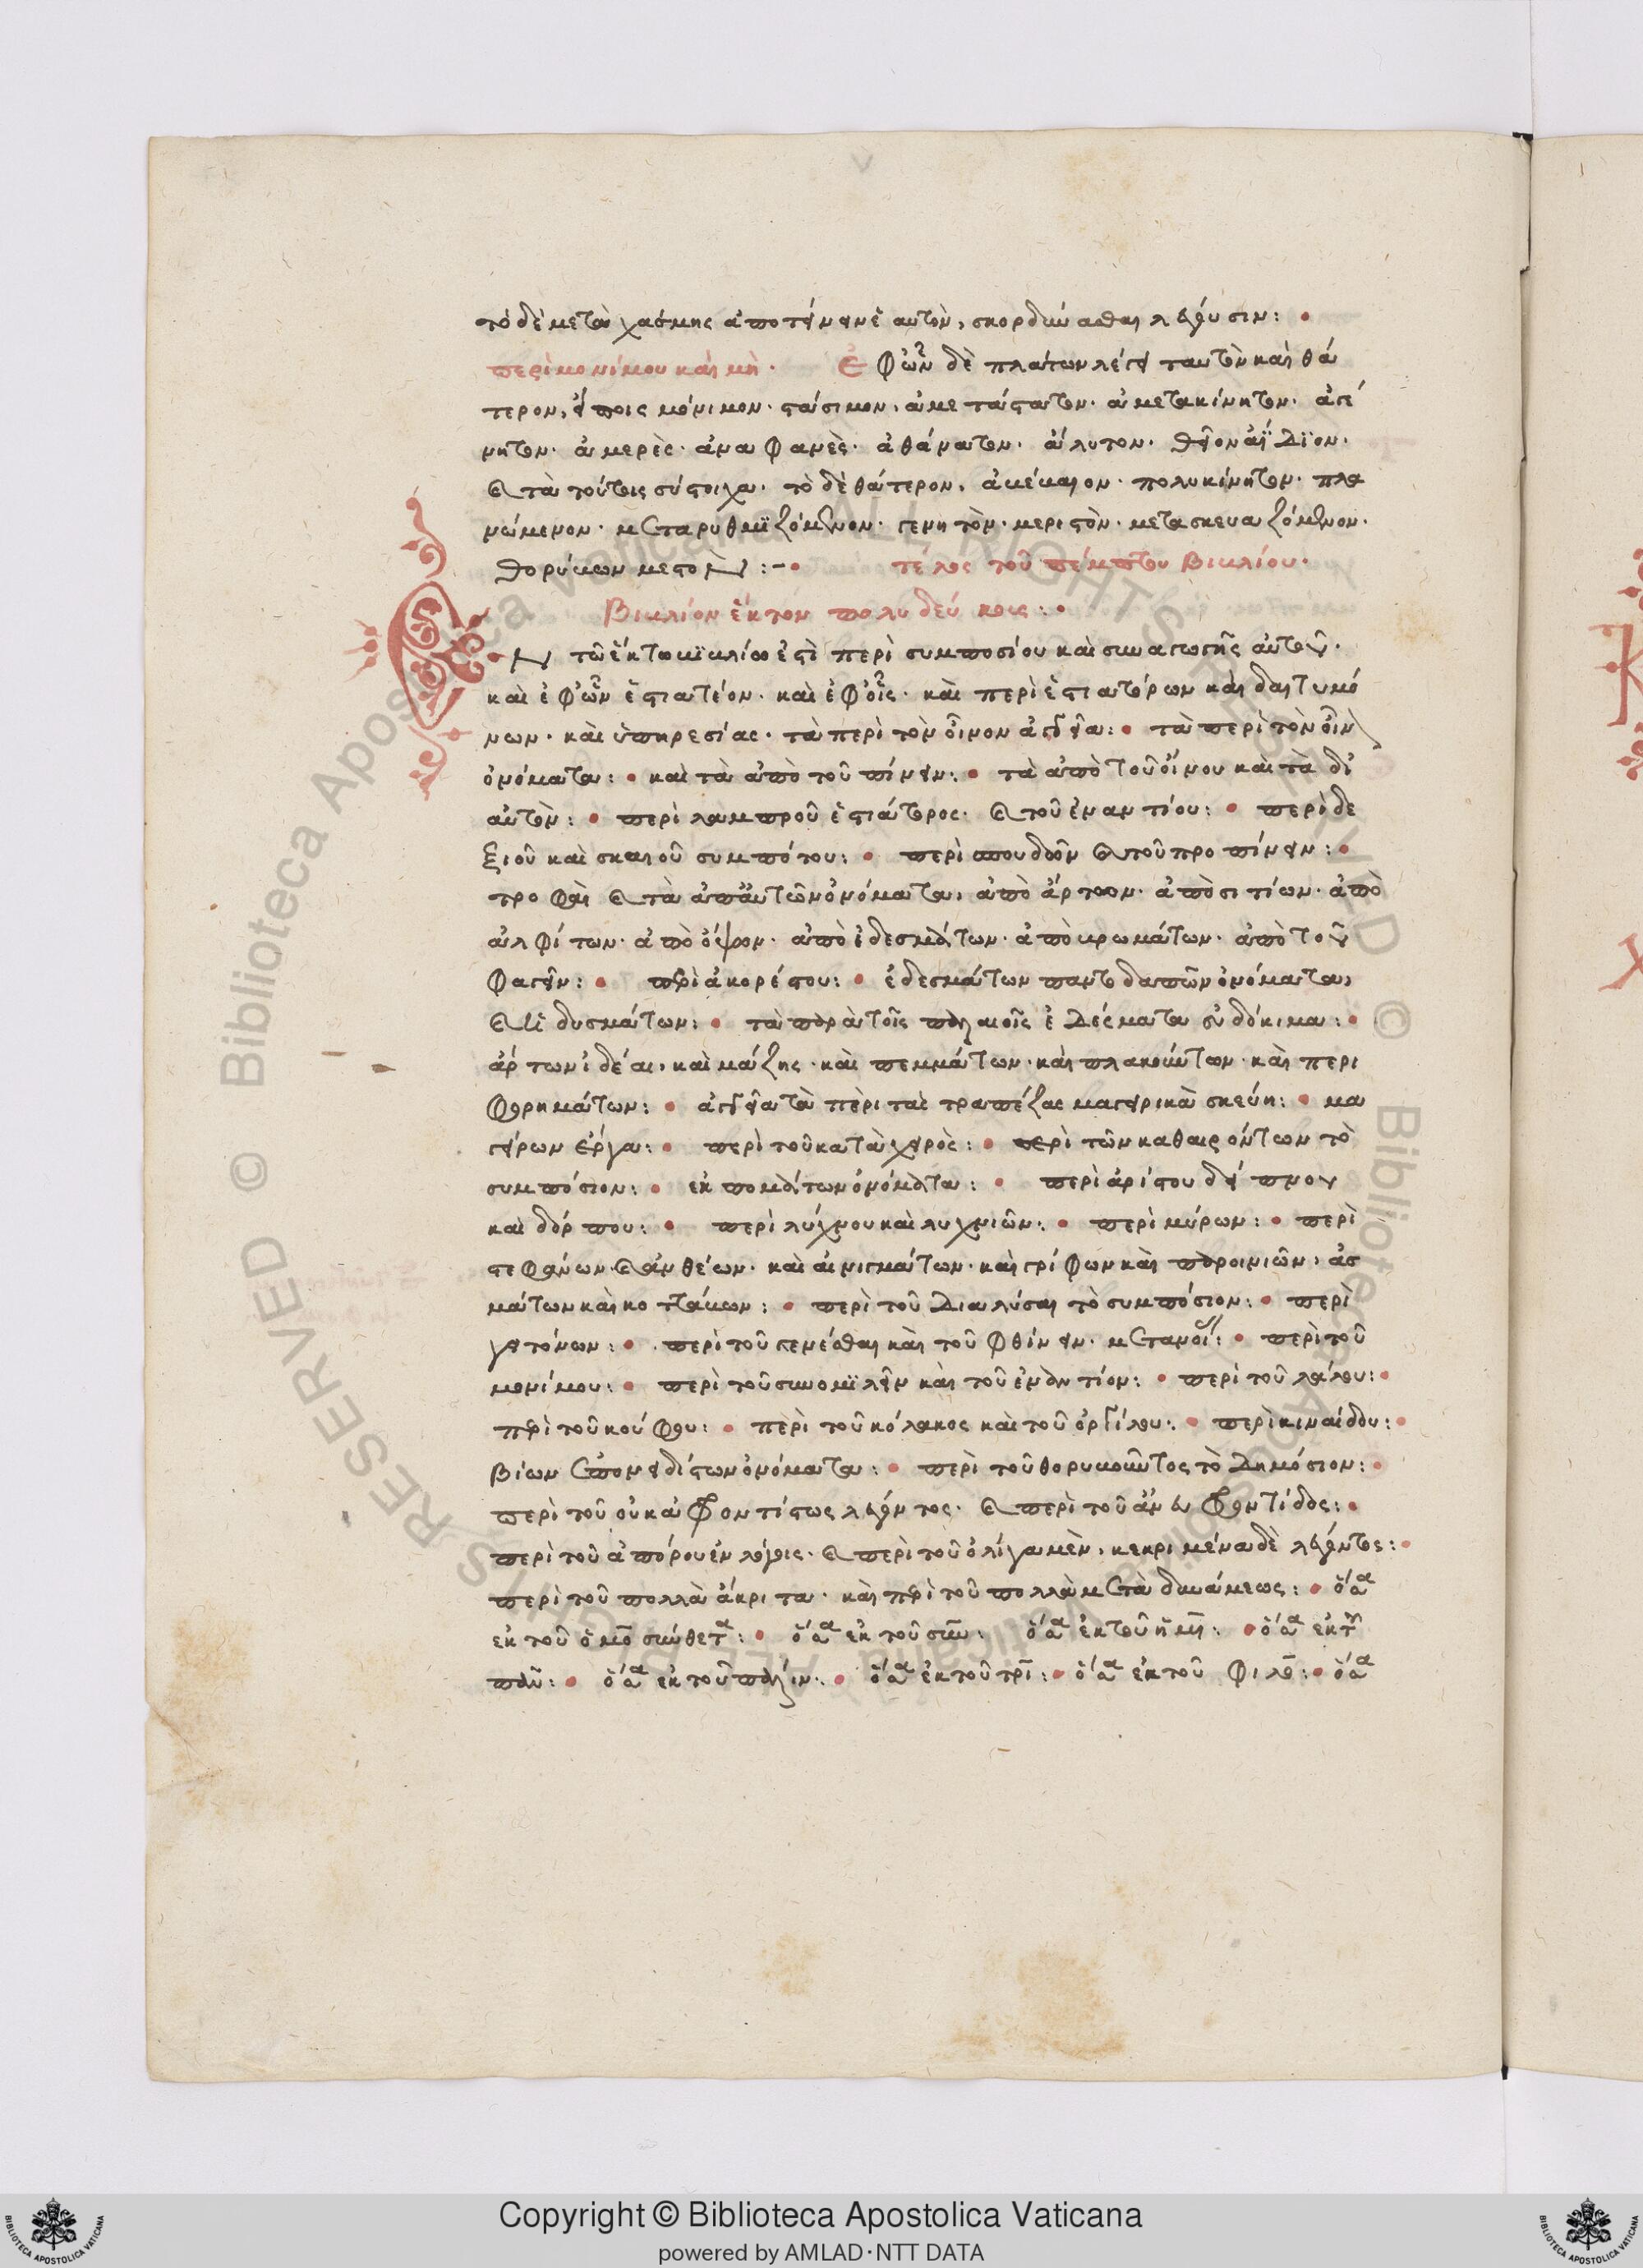 τὸ δὲ μετὰ χάσμης ἀποτείνειν ἑαυτὸν, σκορδινᾶσθαι λέγουσιν: •
περὶ μονίμου καὶ μὴ. Ἐφ' ὧν δὲ πλάτων λέγει ταυτὸν καὶ θά
τερον, εἴποις μόνιμον· στάσιμον, ἀμετάστατον· ἀμετακίνητον· ἀγέ
νητον· ἀμερὲς· ἀθάνατον· ἄλυτον· θεῖον ἀΐδϊον·
τὰ τούτοις σύστοιχα· τὸ δὲ θάτερον, πολυκίνητον· πλα
νώμενον· μεταρυθμϊζόμενον· γενητὸν· μεριστὸν· μετασκευαζόμενον·
θορύβων μεστὸν :- • τέλος τοῦ πέμπτου βιβλίου·
βιβλίον ἕκτον πολυδεύκους: •
Ἐν τῶ ἕκτω βϊβλίω ἐστὶ περὶ συμποσίου καὶ συναγωγῆς αὐτοῦ·
καὶ ἐφ' ὧν ἑστιατέον· καὶ ἐφ' οἷς· καὶ περὶ ἑστιατόρων καὶ δαιτυμό
νων· καὶ ὑπηρεσίας· τὰ περὶ τὸν οἶνον ἀγγεῖα: • τὰ περὶ τὸν οἶν
ὀνόματα: • καὶ τὰ ἀπὸ τοῦ πίνειν: • τὰ ἀπὸ τοῦ οἴνου καὶ τὰ δι'
αὐτὸν: • περὶ λαμπροῦ ἑστιάτορος· καὶ τοῦ ἐναντίου: • περὶ δε
ξιοῦ καὶ σκαιοῦ συμπότου: • περὶ σπονδῶν καὶ τοῦ προπίνειν: •
τροφαὶ καὶ τὰ ἀπ' αὐτῶν ὀνόματα, ἀπὸ ἄρτων· ἀπὸ σιτίων· ἀπὸ
ἀλφίτων· ἀπὸ ὄψων· ἀπὸ ἐδεσμάτων· ἀπὸ βρωμάτων· ἀπὸ τοῦ
φαγεῖν: • περὶ ἀκορέστου: • ἐδεσμάτων παντοδαπῶν ὀνόματα,
καὶ ἡδυσμάτων: • τὰ παρὰ τοῖς παλαιοῖς ἐδέσματα εὐδόκιμα: •
ἄρτων ἰδέαι, καὶ μάζης· καὶ πεμμάτων· καὶ πλακούντων· καὶ περι
φορημάτων: • ἀγγεῖα τὰ περὶ τὰς τραπέζας μαγειρικὰ σκεύη: • μα
γείρων ἔργα: • περὶ τοῦ κατὰ χειρὸς: • περὶ τῶν καθαιρόντων τὸ
συμπόσιον: • ἐκπομάτων ὀνόματα: • περὶ ἀρίστου δείπνου
καὶ δόρπου: • περὶ λύχνου καὶ λυχνιῶν: • περὶ μύρων: • περὶ
στεφάνων καὶ ἀνθέων· καὶ αἰνιγμάτων· καὶ γρίφων καὶ παροινιῶν, ἀσ
μάτων καὶ κοττάβων: • περὶ τοῦ διαλύσαι τὸ συμπόσιον: • περὶ
γειτόνων: • περὶ τοῦ γενέσθαι καὶ τοῦ φθίνειν· • περὶ τοῦ
μονίμου: • περὶ τοῦ συνομϊλεῖν καὶ τοῦ ἐναντίον: • περὶ τοῦ λάλου: •
περὶ τοῦ κούφου: • περὶ τοῦ κόλακος καὶ τοῦ ὀργίλου: • περὶ κιναίδου: •
βίων ἐπονειδίστων ὀνόματα: • περὶ τοῦ θορυβοῦντος τὸ δημόσιον: •
περὶ τοῦ οὐκ ἀφροντίστως λέγοντος· καὶ περὶ τοῦ ἄνευ φροντίδος: •
περὶ τοῦ ἀπόρου ἐν λόγοις· καὶ περὶ τοῦ ὀλίγα μὲν, κεκριμένα δὲ λέγοντος: •
περὶ τοῦ πολλὰ ἄκριτα· καὶ περὶ τοῦ πολλὰ μετὰ δυνάμεως: • ὅσα
ἐκ τοῦ ὁμο σύνθετα: • ὅσα ἐκ τοῦ συν: ὅσα ἐκ τοῦ ἡμι: • ὅσα ἐκ τῆς
παν: • ὅσα ἐκ τοῦ πάλιν: • ὅσα ἐκ τοῦ τρι: • ὅσα ἐκ τοῦ φιλο: • ὅσα
Copyright © Biblioteca Apostolica Vaticana
powered by AMLAD·NTT DATA